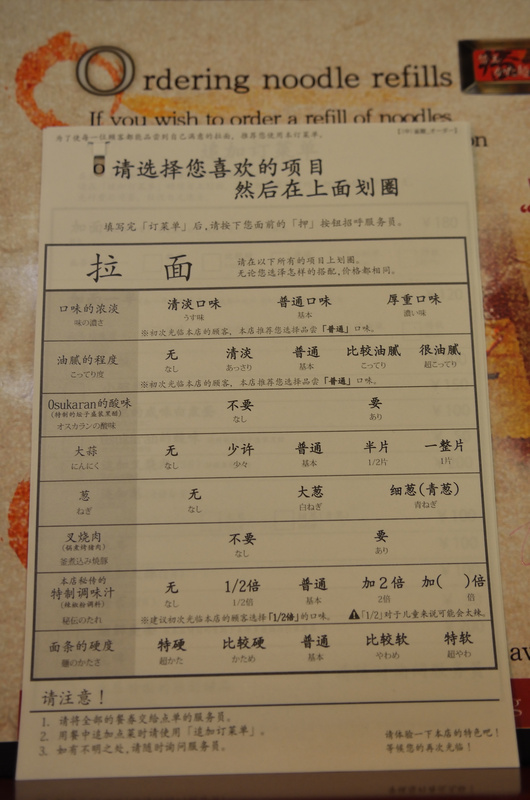 Ordering noodle refills
If you wish to order a refill of noodles,
为了使每一位顾客都能品尝到自己满意的拉面,推荐您使用本订菜单。
请选择您喜欢的项目
然后在上面划圈
填写完「订菜单」后,请按下您面前的「押」按钮招呼服务员。
拉 面
请在以下所有的项目上划圈。
无论您选择怎样的搭配,价格都相同。
口味的浓淡 清淡口味 普通口味 厚重口味
味の濃さ うす味 基本 濃い味
※初次光临本店的顾客,本店推荐您选择品尝「普通」口味。
油腻的程度 无 清淡 普通 比较油腻 很油腻
こってり度 なし あっさり 基本 こってり 超こってり
※初次光临本店的顾客,本店推荐您选择品尝「普通」口味。
Osukaran的酸味 不要 要
(特制的坛子盛装黑醋) なし あり
オスカランの酸味
大蒜 无 少许 普通 半片 一整片
にんにく なし 少々 基本 1/2片 1片
葱 无 大葱 细葱(青葱)
ねぎ なし 白ねぎ 青ねぎ
叉烧肉 不要 要
(锅煮烤猪肉) なし あり
釜煮込み焼豚
本店秘传的
特制调味汁 无 1/2倍 普通 加2倍 加( )倍
(辣椒粉调料) なし 1/2倍 基本 2倍 倍
秘伝のたれ ※建议初次光临本店的顾客选择「1/2倍」的口味。 「1/2」对于儿童来说可能会太辣。
面条的硬度 特硬 比较硬 普通 比较软 特软
麺のかたさ 超かた かため 基本 やわめ 超やわ
请注意!
1. 请将全部的餐券交给点单的服务员。
2. 用餐中追加点菜时请使用「追加订菜单」。
3. 如有不明之处,请随时询问服务员。
请体验一下本店的特色吧!
等候您的再次光临!